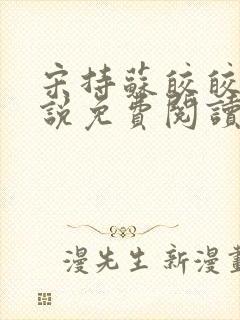 宋持蘇皎皎
說免費閱讀
漫先生新漫畫